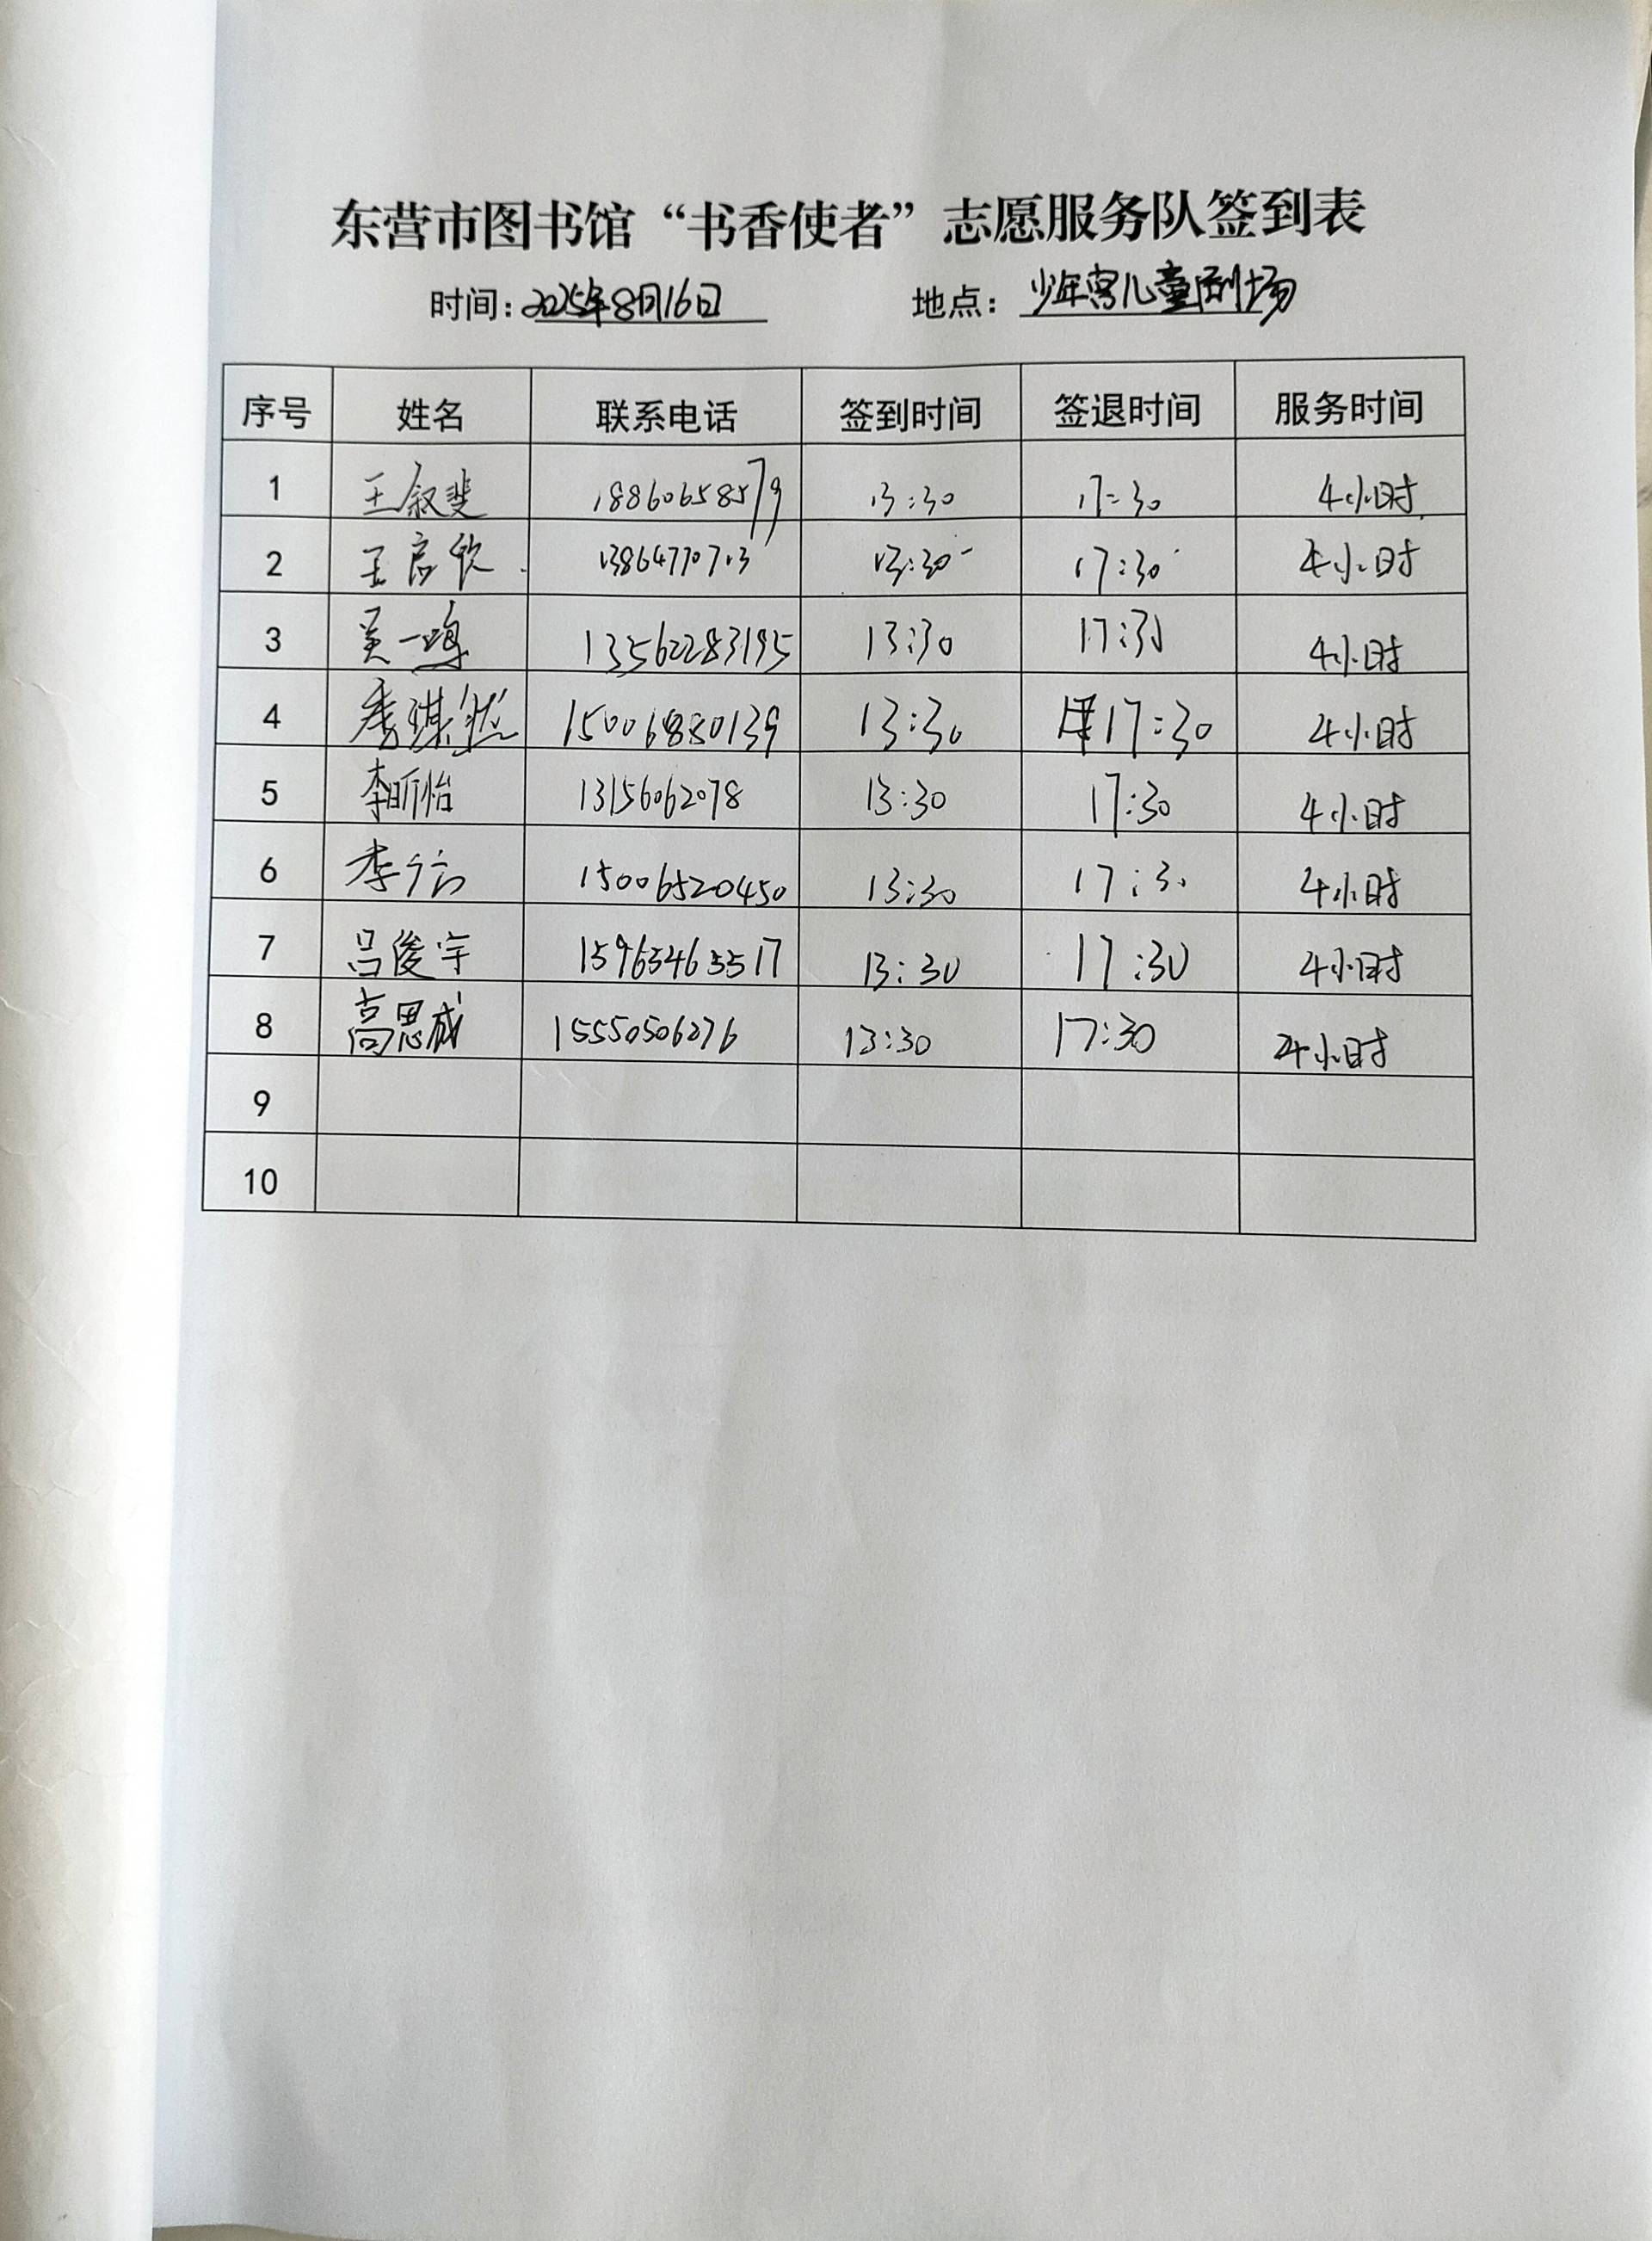 东营市图书馆“书香使者”志愿服务队签到表
时间：2025年8月16日 地点：少年宫儿童剧场
序号 姓名 联系电话 签到时间 签退时间 服务时间
1 王叙斐 18860658579 13:30 17:30 4小时
2 王启钦 13864770713 13:30 17:30 4小时
3 吴一鸣 13562283195 13:30 17:30 4小时
4 季琪然 15006880139 13:30 17:30 4小时
5 李昕怡 13156062078 13:30 17:30 4小时
6 李 15006520450 13:30 17:30 4小时
7 吕俊宇 15963463517 13:30 17:30 4小时
8 高思成 15550506276 13:30 17:30 4小时
9
10